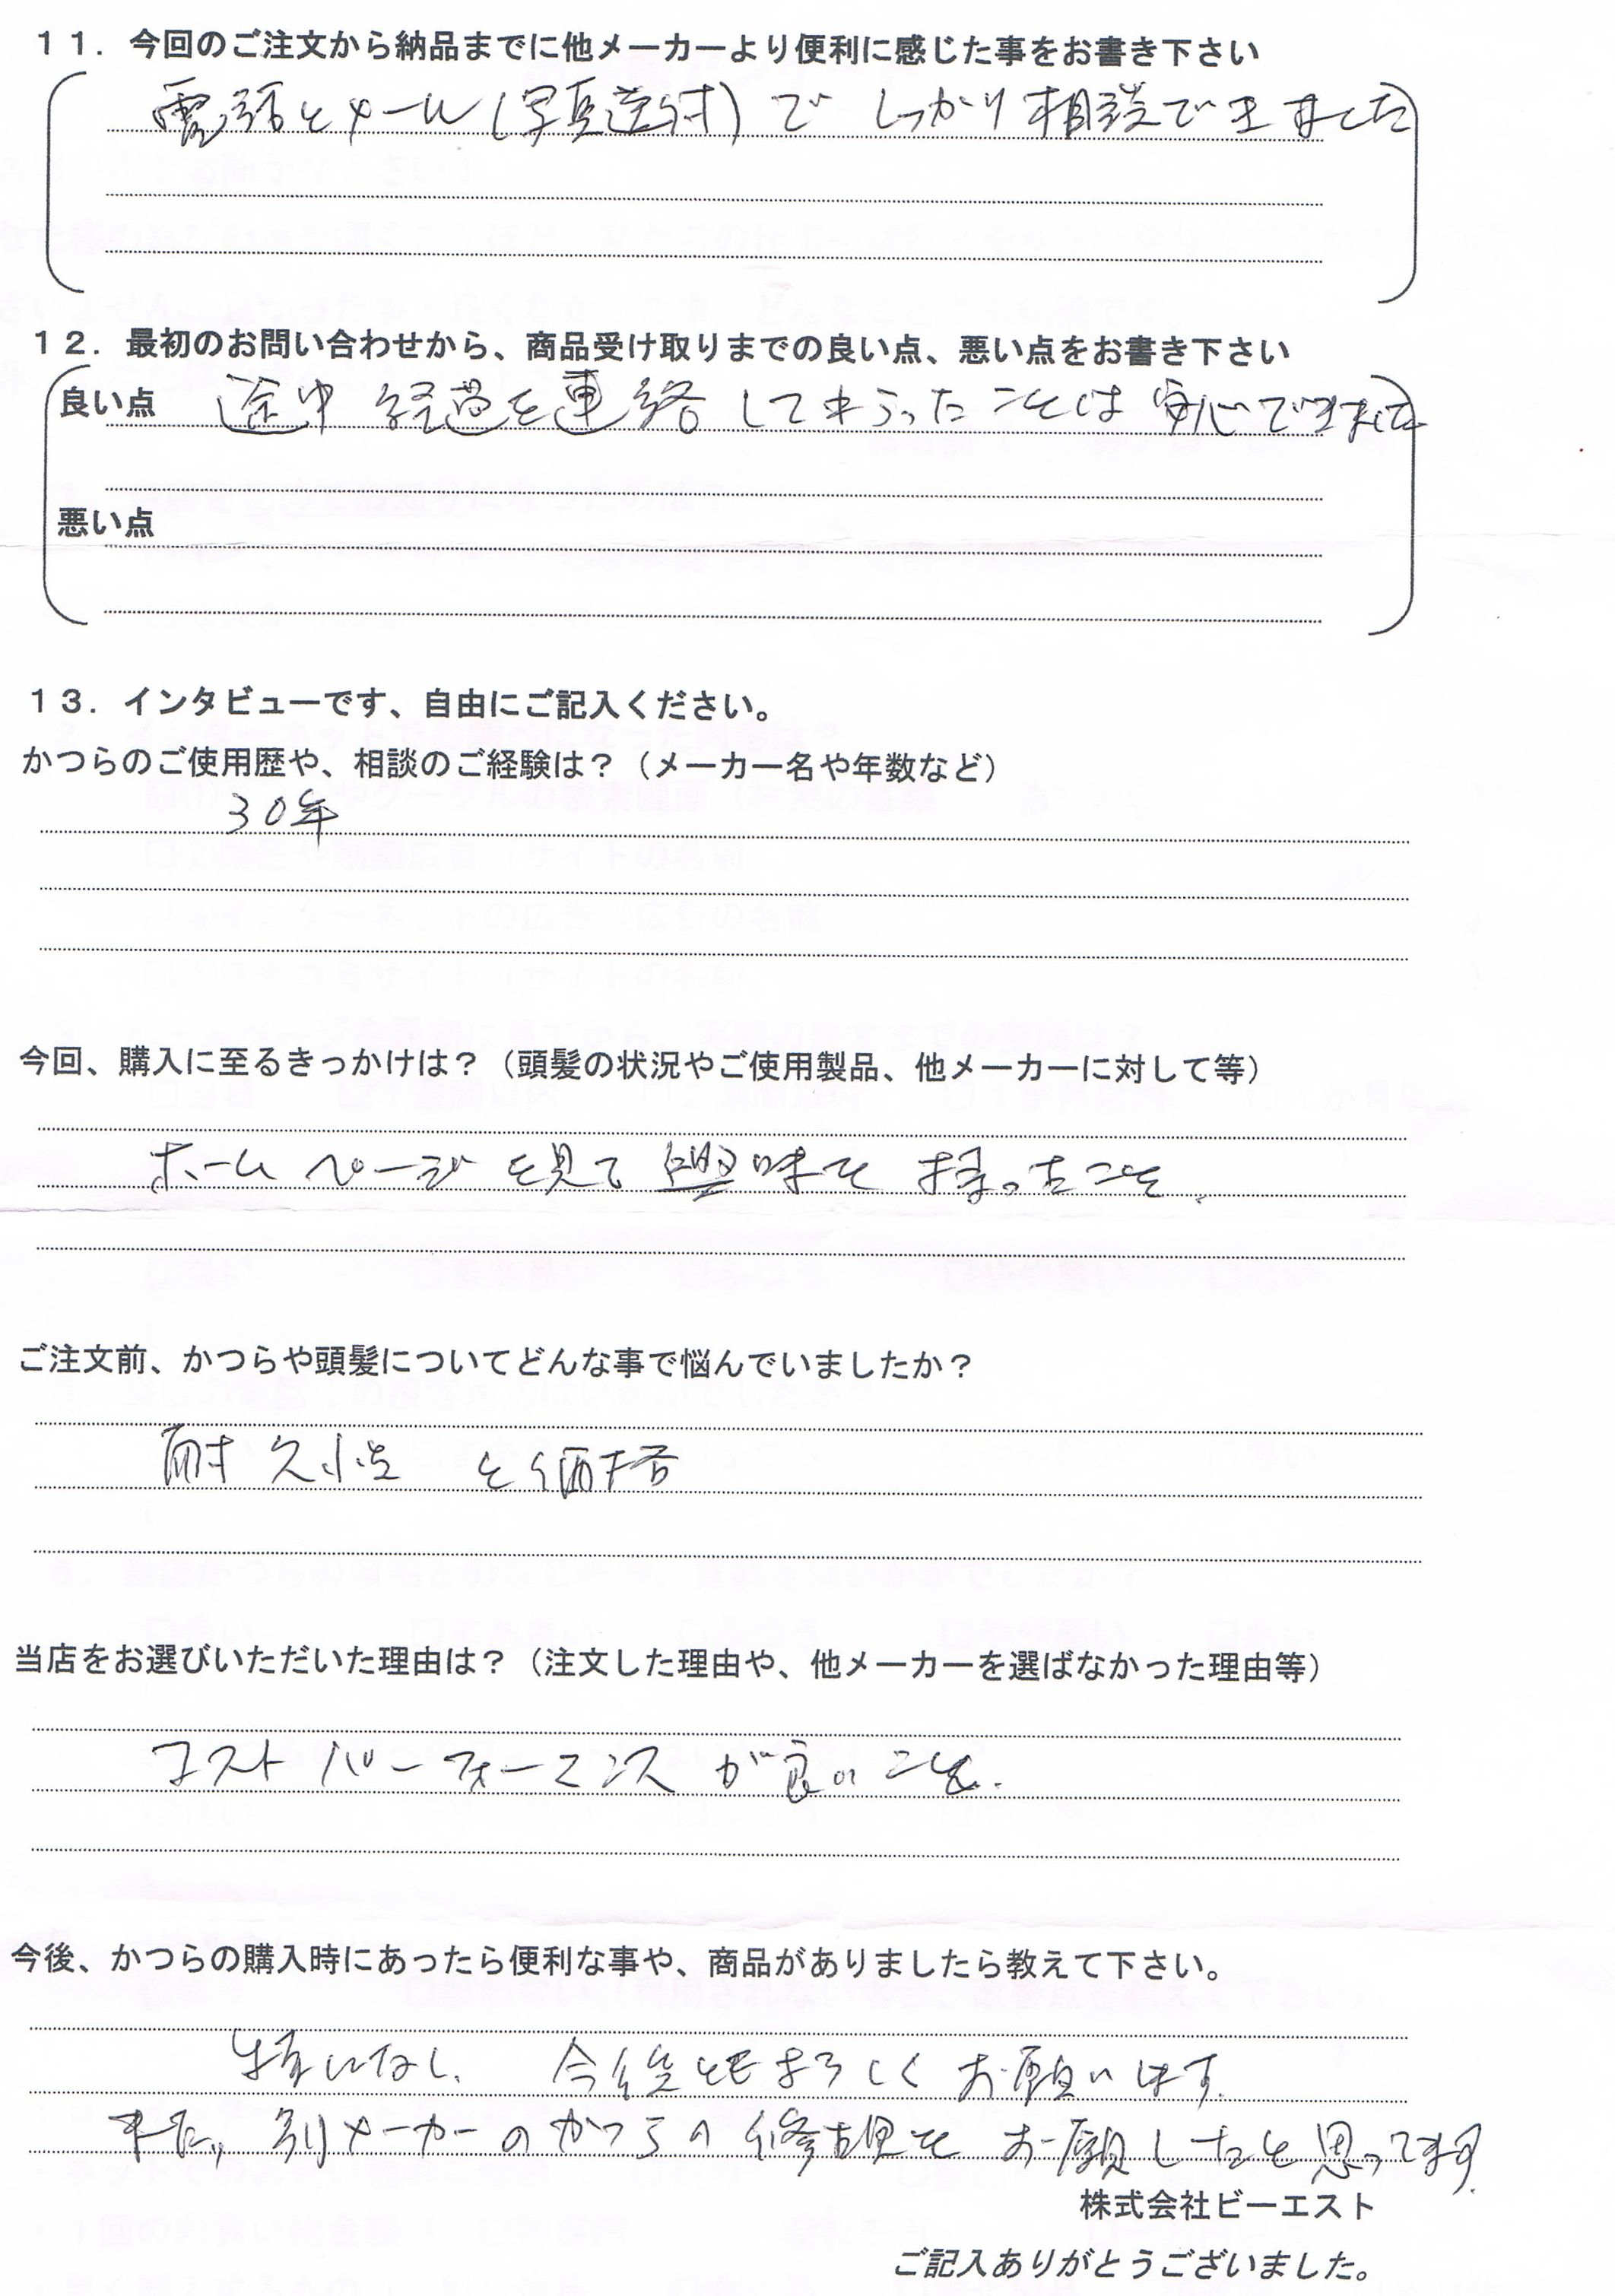 １１．今回のご注文から納品までに他メーカーより便利に感じた事をお書き下さい
電話とメール(写真送付)で しっかり相談できました
１２．最初のお問い合わせから、商品受け取りまでの良い点、悪い点をお書き下さい
良い点 途中経過を連絡してもらったことは安心できました
悪い点
１３．インタビューです、自由にご記入ください。
かつらのご使用歴や、相談のご経験は？（メーカー名や年数など）
30年
今回、購入に至るきっかけは？（頭髪の状況やご使用製品、他メーカーに対して等）
ホームページを見て興味を持ったこと.
ご注文前、かつらや頭髪についてどんな事で悩んでいましたか？
耐久性と価格
当店をお選びいただいた理由は？（注文した理由や、他メーカーを選ばなかった理由等）
コストパーフォーマンスが良いこと.
今後、かつらの購入時にあったら便利な事や、商品がありましたら教えて下さい。
特になし、今後ともよろしくお願いします.
また、別メーカーのかつらの修理をお願いしたいと思ってます.
株式会社ビーエスト
ご記入ありがとうございました。